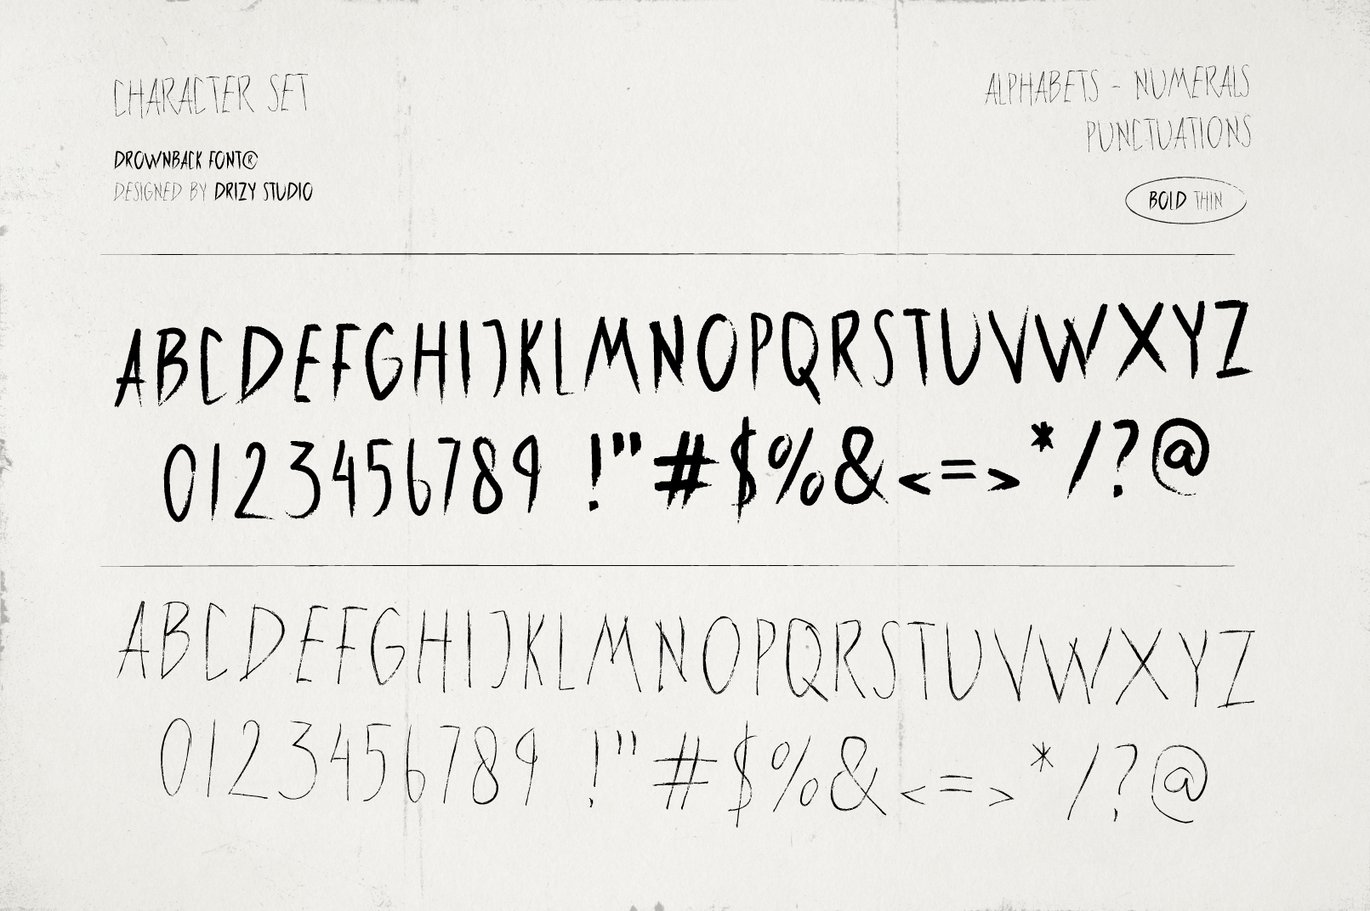 CHARACTER SET
DROWNBACK FONT®
DESIGNED BY DRIZY STUDIO
ALPHABETS - NUMERALS
PUNCTUATIONS
BOLD THIN
ABCDEFGHIJKLMNOPQRSTUVWXYZ
0123456789 !"#$%&<=>*/?@
ABCDEFGHIJKLMNOPQRSTUVWXYZ
0123456789 !"#$%&<=>*/?@